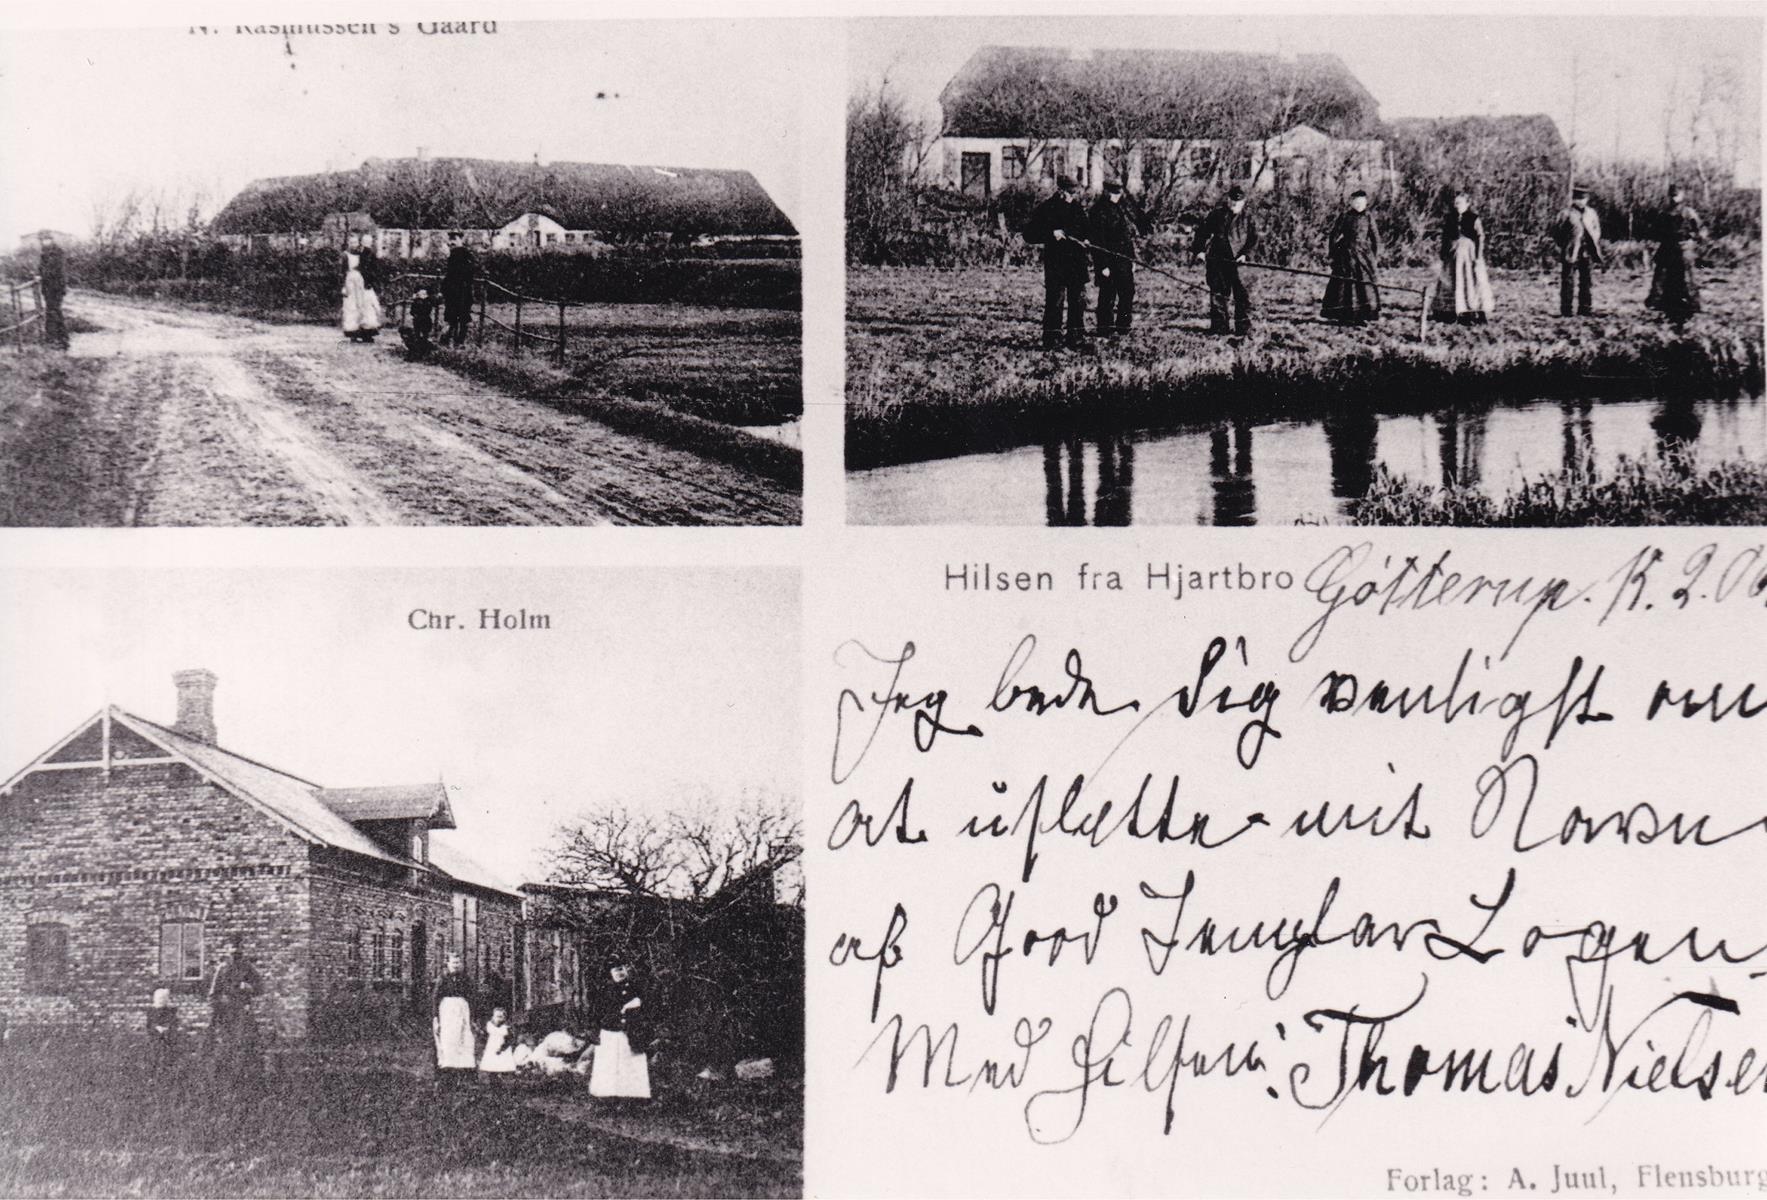 N. Rasmussen's Gaard
Chr. Holm
Hilsen fra Hjartbro Götterup.
Jeg bede Dig venligst om
at uslette mit Navn
af Good Templar Logen,
Med Hilsen: Thomas Nielsen
Forlag: A. Juul, Flensburg